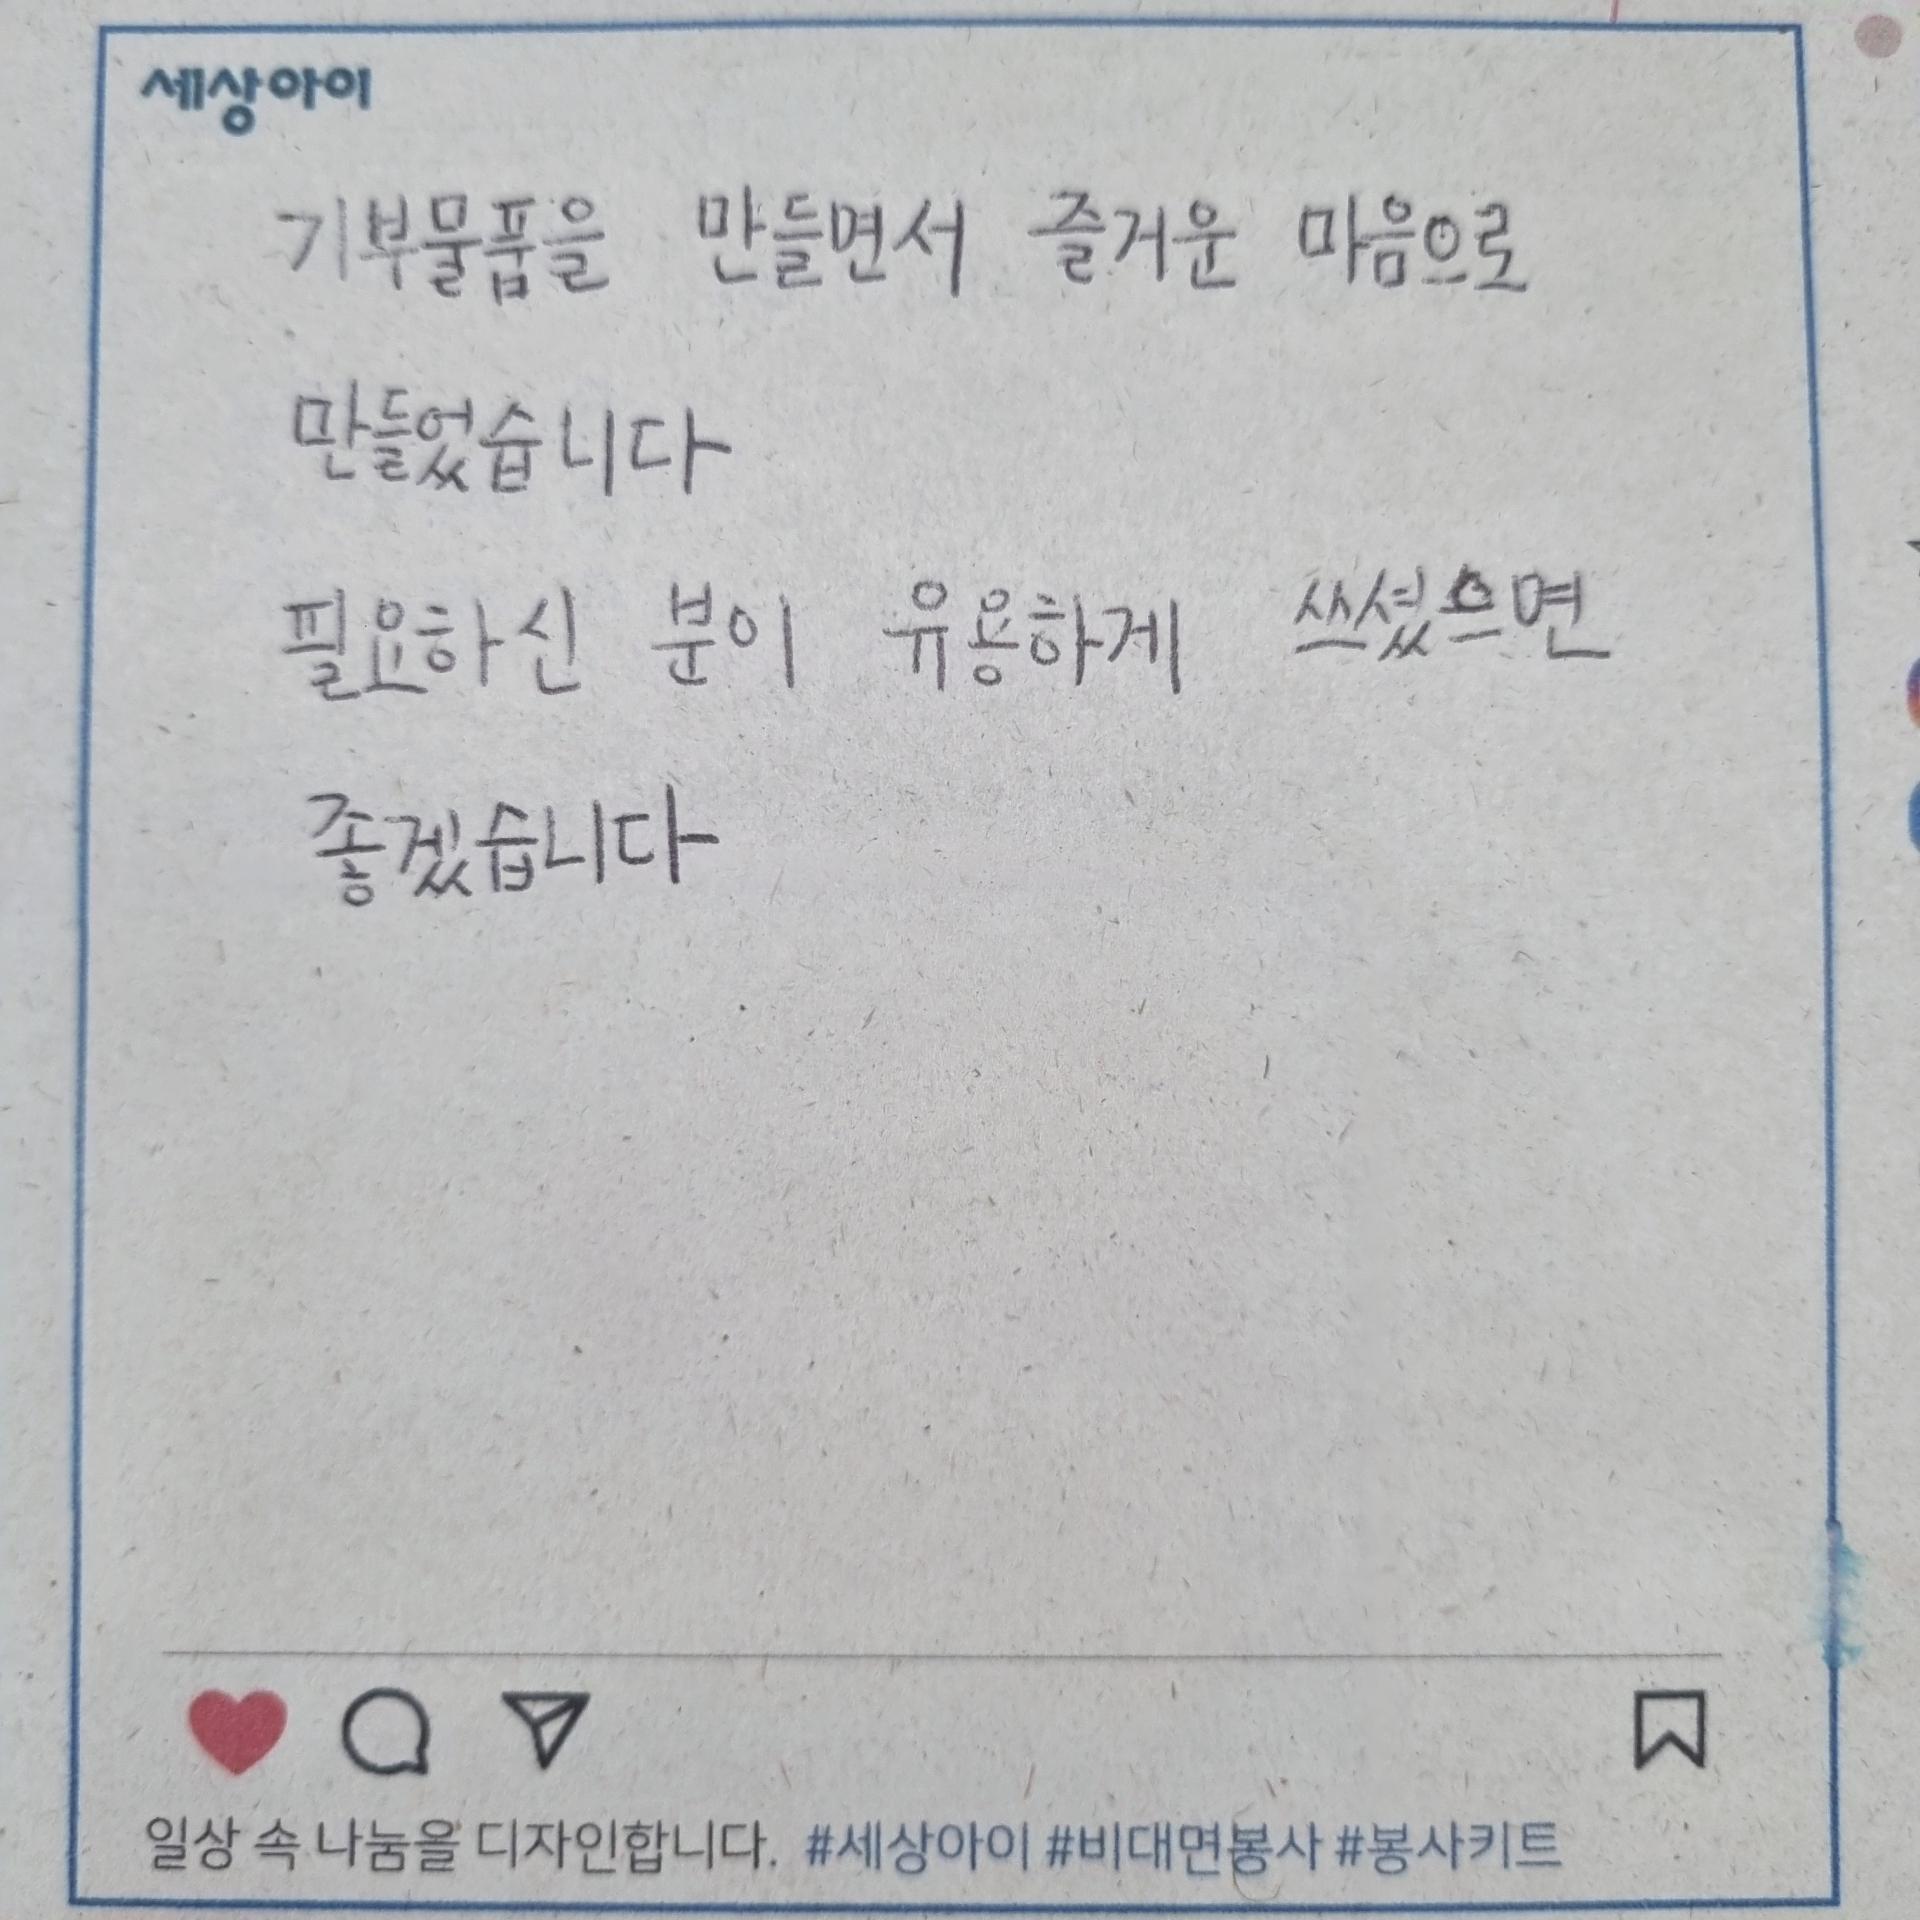 세상아이
기부물품을 만들면서 즐거운 마음으로
만들었습니다
필요하신 분이 유용하게 쓰셨으면
좋겠습니다
일상 속 나눔을 디자인합니다. #세상아이 #비대면봉사 #봉사키트